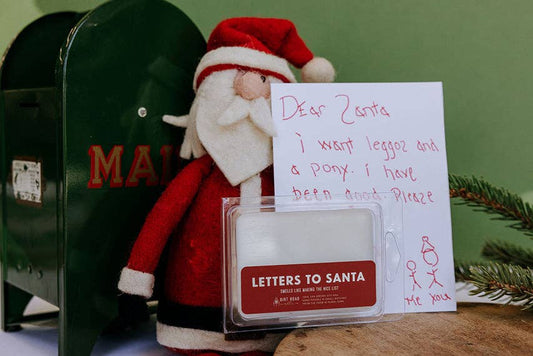 MAI
Dear Santa
i want leggos and
a pony. i have
been good. Please
Me you
LETTERS TO SANTA
SMELLS LIKE MAKING THE NICE LIST
DIRT ROAD